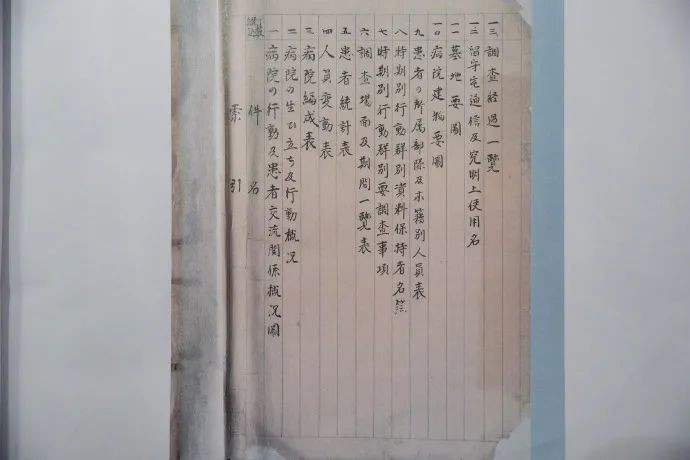 索引
件名
一 病院の行動及患者交流関係概況図
二 病院の生ひ立ち及行動概況
三 病院編成表
四 人員変動表
五 患者統計表
六 調査場面及期間一覧表
七 時期別行動群別要調査事項
八 時期別行動群別資料保持者名簿
九 患者の所属部隊及本籍別人員表
一〇 病院建物要図
一一 墓地要図
一二 留守宅通信及究明上使用名
一三 調査経過一覧